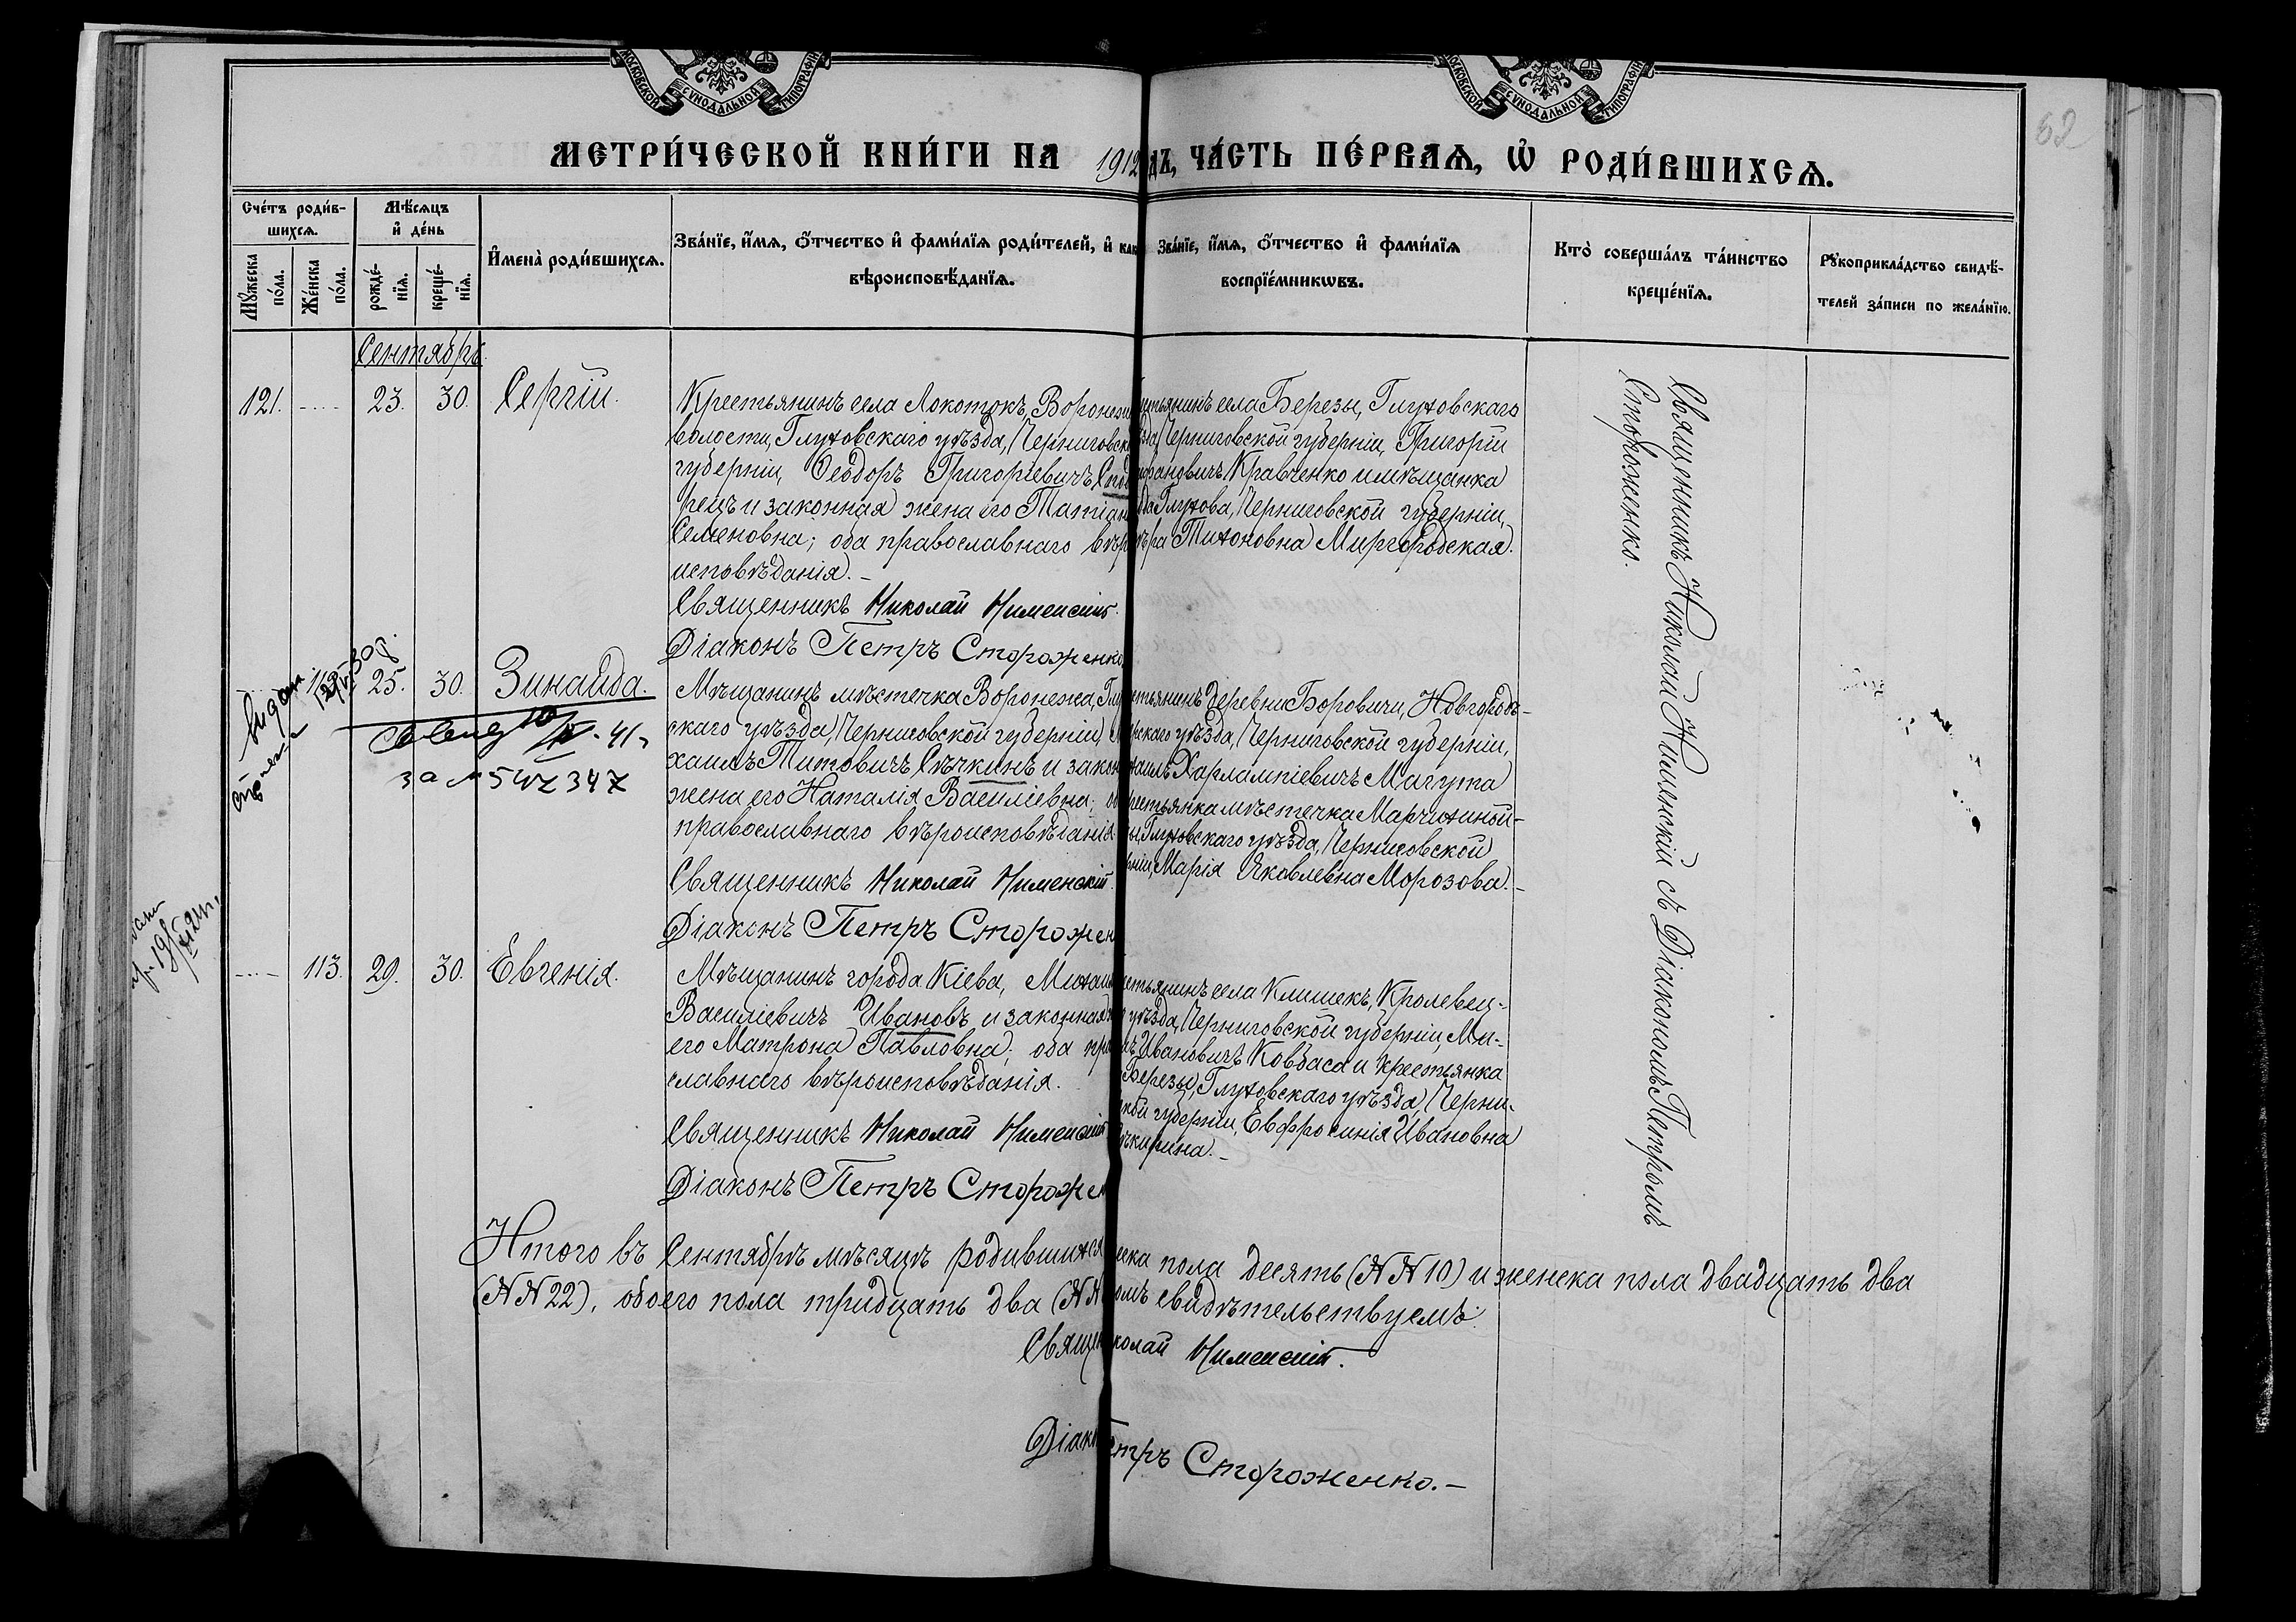 МОСКОВСКОЙ СѴНОДАЛЬНОЙ ТИПОГРАФІИ
МОСКОВСКОЙ СѴНОДАЛЬНОЙ ТИПОГРАФІИ
62
МЕТРИ́ЧЕСКОЙ КНИ́ГИ НА 1912 ДЪ, ЧА́СТЬ ПЕ́РВАѦ, Ѡ РОДИ́ВШИХСѦ.
Сче́тъ роди́в-
шихсѧ.
Мꙋ́жеска по́ла.
Же́нска по́ла.
Мѣ́сѧцъ
и҆ де́нь
рожде́-
нїѧ.
креще́-
нїѧ.
И҆мена̀ роди́вшихсѧ.
Зва́нїе, и҆́мѧ, ѻ҆́тчество и҆ фами́лїѧ роди́телей, и҆ как
вѣроисповѣ́данїѧ.
Зва́нїе, и҆́мѧ, ѻ҆́тчество и҆ фами́лїѧ
воспрїе́мникѡвъ.
Кто̀ соверша́лъ та́инство
креще́нїѧ.
Рꙋкоприкла́дство свидѣ́-
телей за́писи по жела́нїю.
Сентябрь.
121. 23. 30. Сергій.
Крестьянинъ села Локотокъ, Воронежс
волости, Глуховскаго уѣзда, Черниговск
губерніи, Ѳеодоръ Григоріевичъ Спод
рецъ и законная жена его Татіан
Семеновна; оба православнаго вѣр
исповѣданія. –
Священникъ Николай Нименскій.
Діаконъ Петръ Стороженко
стьянинъ села Березы, Глуховскаго
зда, Черниговской губерніи, Григорій
фановичъ Кравченко и мѣщанка
да Глухова, Черниговской губерніи,
ѣра Тихоновна Миргородская.
Священникъ Николай Нименскій съ Діакономъ Петромъ
Стороженко.
25. 30. Зинаида.
41
за № 5
347
Мѣщанинъ мѣстечка Воронежа, Глу
скаго уѣзда, Черниговской губерніи, М
хаилъ Титовичъ Сѣчкинъ и закон
жена его Наталія Василіевна; об
православнаго вѣроисповѣданія
Священникъ Николай Нименскій.
Діаконъ Петръ Сторожен
стьянинъ деревни Боровичи, Новгородъ-
рскаго уѣзда, Черниговской губерніи,
хаилъ Харлампіевичъ Мачута
рестьянка мѣстечка Марчихиной-
ы, Глуховскаго уѣзда, Черниговской
рніи, Марія Яковлевна Морозова. –
113. 29. 30. Евгенія.
Мѣщанинъ города Кіева, Михаил
Василіевичъ Ивановъ и законная ж
его Матрона Павловна; оба пра
славнаго вѣроисповѣданія.
Священникъ Николай Нименскій
Діаконъ Петръ Стороже
стьянинъ села Клишекъ, Кролевец-
уѣзда, Черниговской губерніи, Ми-
лъ Ивановичъ Ковбаса и крестьянка
Березы, Глуховскаго уѣзда, Черни-
ской губерніи, Евфросинія Ивановна
Итого въ Сентябрѣ мѣсяцѣ родившихся
ска пола десять (№№ 10) и женска пола двадцать два
(№№ 22), обоего пола тридцать два (№№
омъ свидѣтельствуемъ:
Священ
колай Нименскій.
Діако
етръ Стороженко. –